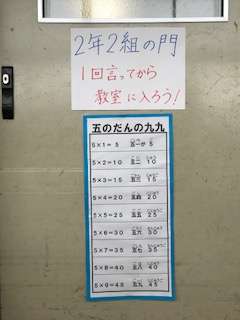 2年2組の門
1回言ってから
教室に入ろう!
五のだんの九九
5×1=5 五一が 5
5×2=10 五二 10
5×3=15 五三 15
5×4=20 五四 20
5×5=25 五五 25
5×6=30 五六 30
5×7=35 五七 35
5×8=40 五八 40
5×9=45 五九 45